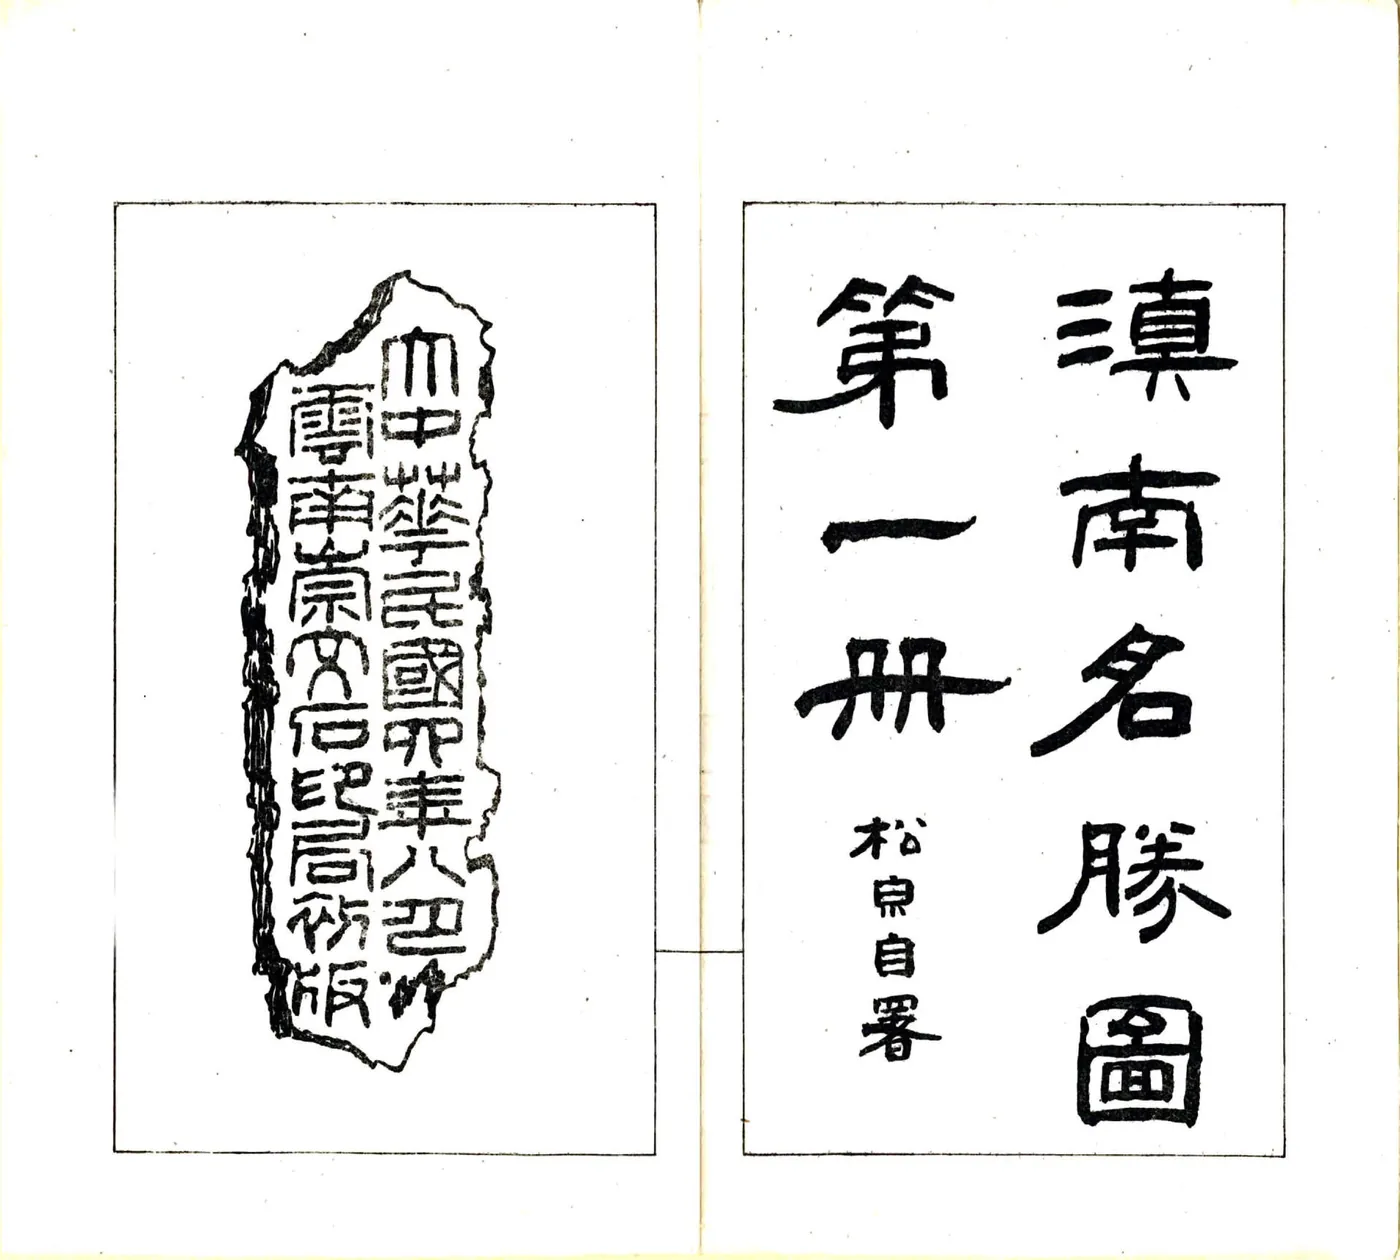 滇南名勝圖
第一册
松泉自署
大中華民國四年八月
雲南崇文石印局初版